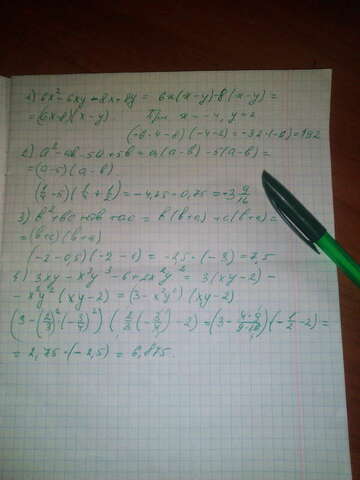 1) 6x² - 6xy - 8x + 8y = 6x(x-y) - 8(x-y) =
= (6x-8)(x-y). При x = -4, y = 2
(-6·4-8)(-4-2) = -32·(-6) = 192
2) a² - ab - 5a + 5b = a(a-b) - 5(a-b) =
= (a-5)(a-b)
= -4,75 · 0,75 = -3 9/16
= b(b+a) + c(b+a) =
= (b+c)(b+a)
(-2-0,5)(-2-1) = -2,5·(-3) = 7,5
4) 3xy - x³y³ - 6 + 2x²y² = 3(xy-2) -
- x²y²(xy-2) = (3-x²y²)(xy-2)
(3-(2/3)²·(-3/4)²)(2/3·(-3/4)-2) = (3-4·9/9·16)(-1/2-2) =
= 2,75·(-2,5) = 6,875.